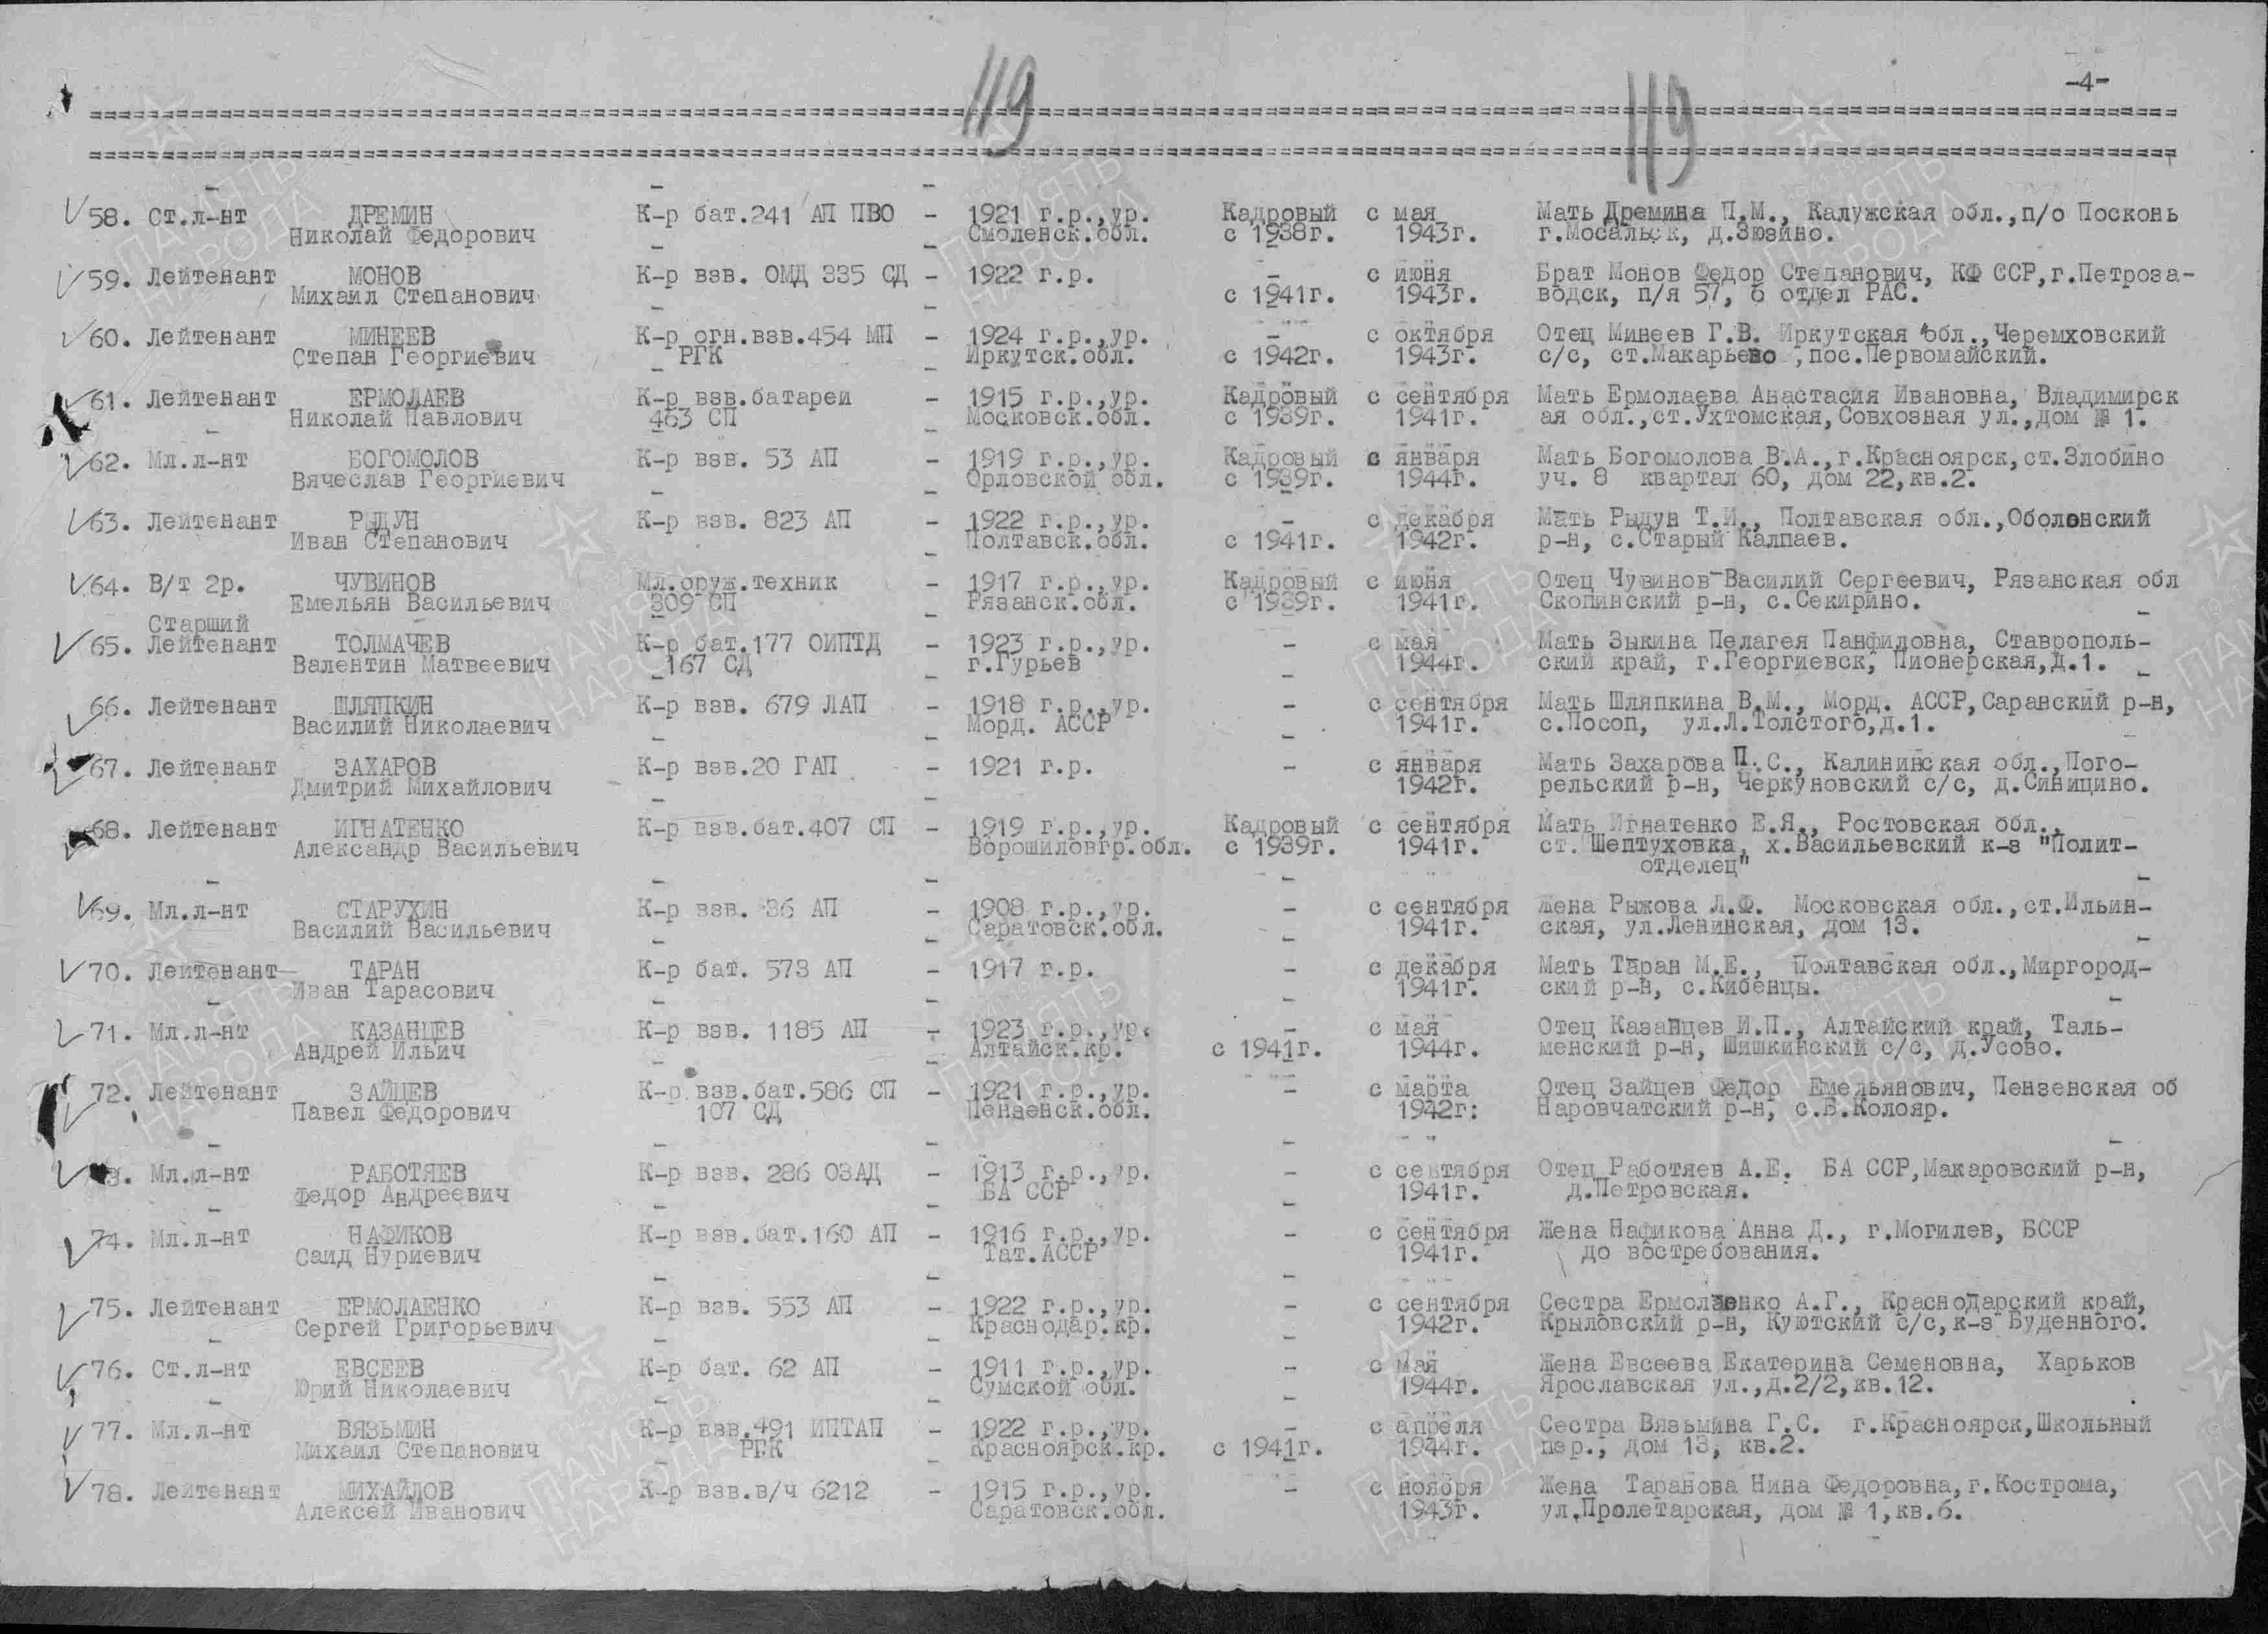 119 119 -4-
58. Ст.л-нт ДРЕМИН К-р бат.241 АП ПВО - 1921 г.р.,ур. Кадровый с мая Мать Дремина П.М., Калужская обл.,п/о Посконь
Николай Федорович Смоленск.обл. с 1938г. 1943г. г.Мосальск, д.Зюзино.
59. Лейтенант МОНОВ К-р взв. ОМД 335 СД - 1922 г.р. - с июня Брат Монов Федор Степанович, КФ ССР,г.Петроза-
Михаил Степанович с 1941г. 1943г. водск, п/я 57, 6 отдел РАС.
60. Лейтенант МИНЕЕВ К-р огн.взв.454 МП - 1924 г.р.,ур. - с октября Отец Минеев Г.В. Иркутская обл.,Черемховский
Степан Георгиевич РГК Иркутск.обл. с 1942г. 1943г. с/с, ст.Макарьево ,пос.Первомайский.
61. Лейтенант ЕРМОЛАЕВ К-р взв.батареи - 1915 г.р.,ур. Кадровый с сентября Мать Ермолаева Анастасия Ивановна, Владимирск
Николай Павлович 463 СП Московск.обл. с 1939г. 1941г. ая обл.,ст.Ухтомская,Совхозная ул.,дом № 1.
62. Мл.л-нт БОГОМОЛОВ К-р взв. 53 АП - 1919 г.р.,ур. Кадровый с января Мать Богомолова В.А.,г.Красноярск,ст.Злобино
Вячеслав Георгиевич Орловской обл. с 1939г. 1944г. уч. 8 квартал 60, дом 22,кв.2.
63. Лейтенант РЫДУН К-р взв. 823 АП - 1922 г.р.,ур. - с декабря Мать Рыдун Т.И., Полтавская обл.,Оболонский
Иван Степанович Полтавск.обл. с 1941г. 1942г. р-н, с.Старый Калпаев.
64. В/т 2р. ЧУВИНОВ Мл.оруж.техник - 1917 г.р.,ур. Кадровый с июня Отец Чувинов Василий Сергеевич, Рязанская обл
Емельян Васильевич 309 СП Рязанск.обл. с 1939г. 1941г. Скопинский р-н, с.Секирино.
Старший
65. Лейтенант ТОЛМАЧЕВ К-р бат.177 ОИПТД - 1923 г.р.,ур. - с мая Мать Зыкина Пелагея Панфиловна, Ставрополь-
Валентин Матвеевич 167 СД г.Гурьев - 1944г. ский край, г.Георгиевск, Пионерская,д.1.
66. Лейтенант ШЛЯПКИН К-р взв. 679 ЛАП - 1918 г.р.,ур. - с сентября Мать Шляпкина В.М., Морд. АССР,Саранский р-н,
Василий Николаевич Морд. АССР - 1941г. с.Посоп, ул.Л.Толстого,д.1.
67. Лейтенант ЗАХАРОВ К-р взв.20 ГАП - 1921 г.р. - с января Мать Захарова П.С., Калининская обл.,Пого-
Дмитрий Михайлович 1942г. рельский р-н, Черкуновский с/с, д.Синицино.
68. Лейтенант ИГНАТЕНКО К-р взв.бат.407 СП - 1919 г.р.,ур. Кадровый с сентября Мать Игнатенко Е.Я., Ростовская обл.,
Александр Васильевич Ворошиловгр.обл. с 1939г. 1941г. ст.Шептуховка, х.Васильевский к-з "Полит-
отделец"
69. Мл.л-нт СТАРУХИН К-р взв. 36 АП - 1908 г.р.,ур. - с сентября Жена Рыжова Л.Ф. Московская обл.,ст.Ильин-
Василий Васильевич Саратовск.обл. - 1941г. ская, ул.Ленинская, дом 13.
70. Лейтенант ТАРАН К-р бат. 573 АП - 1917 г.р. - с декабря Мать Таран М.Е., Полтавская обл.,Миргород-
Иван Тарасович - 1941г. ский р-н, с.Кибенцы.
71. Мл.л-нт КАЗАНЦЕВ К-р взв. 1185 АП - 1923 г.р.,ур. - с мая Отец Казанцев И.П., Алтайский край, Таль-
Андрей Ильич Алтайск.кр. с 1941г. 1944г. менский р-н, Шишкинский с/с, д.Усово.
72. Лейтенант ЗАЙЦЕВ К-р взв.бат.586 СП - 1921 г.р.,ур. - с марта Отец Зайцев Федор Емельянович, Пензенская об
Павел Федорович 107 СД Пензенск.обл. 1942г. Наровчатский р-н, с.Б.Колояр.
Мл.л-нт РАБОТЯЕВ К-р взв. 286 ОЗАД - 1913 г.р.,ур. - с сентября Отец Работяев А.Е. БА ССР,Макаровский р-н,
Федор Андреевич БА ССР 1941г. д.Петровская.
74. Мл.л-нт НАФИКОВ К-р взв.бат.160 АП - 1916 г.р.,ур. - с сентября Жена Нафикова Анна Д., г.Могилев, БССР
Саид Нуриевич Тат.АССР 1941г. до востребования.
75. Лейтенант ЕРМОЛАЕНКО К-р взв. 553 АП - 1922 г.р.,ур. - с сентября Сестра Ермолаенко А.Г., Краснодарский край,
Сергей Григорьевич Краснодар.кр. - 1942г. Крыловский р-н, Куютский с/с,к-з Буденного.
76. Ст.л-нт ЕВСЕЕВ К-р бат. 62 АП - 1911 г.р.,ур. - с мая Жена Евсеева Екатерина Семеновна, Харьков
Юрий Николаевич Сумской обл. - 1944г. Ярославская ул.,д.2/2,кв.12.
77. Мл.л-нт ВЯЗЬМИН К-р взв.491 ИПТАП - 1922 г.р.,ур. - с апреля Сестра Вязьмина Г.С. г.Красноярск,Школьный
Михаил Степанович РГК Красноярск.кр. с 1941г. 1944г. пер., дом 13, кв.2.
78. Лейтенант МИХАЙЛОВ К-р взв.в/ч 6212 - 1915 г.р.,ур. - с ноября Жена Таранова Нина Федоровна,г.Кострома,
Алексей Иванович Саратовск.обл. 1943г. ул.Пролетарская, дом № 1,кв.6.